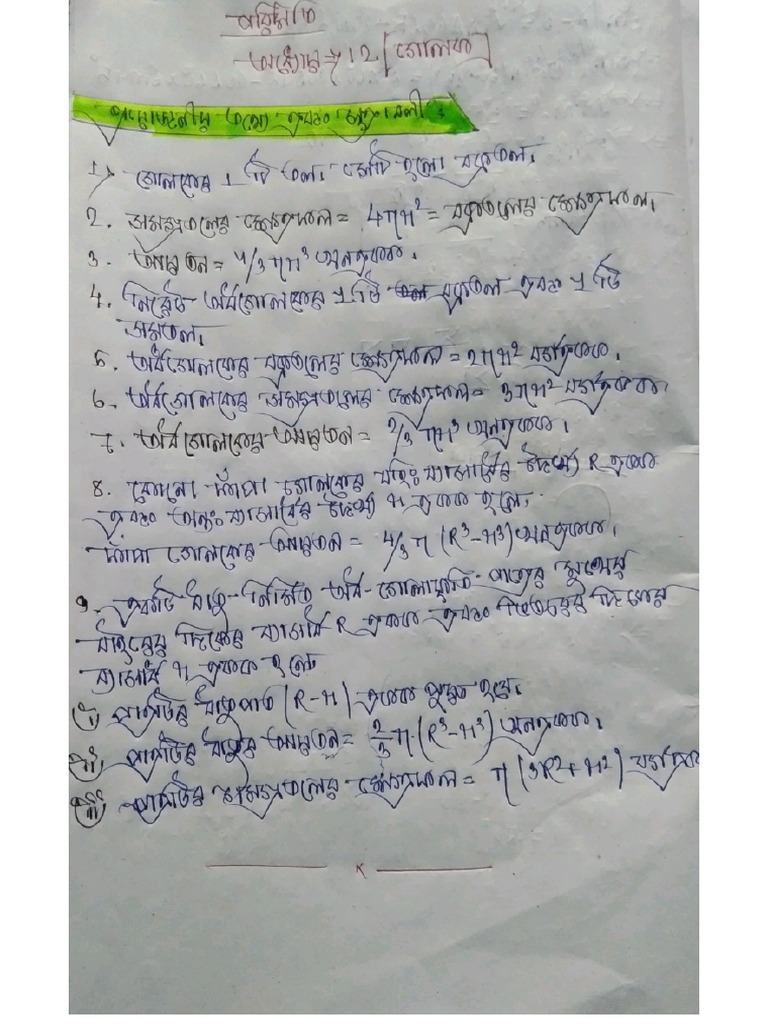 পরিমিতি
অধ্যায় ⇒ 12 [গোলক]
প্রয়োজনীয় তথ্য এবং সূত্রাবলী :
1> গোলকের 1 টি তল। সেটি হলো বক্রতল।
2. সমগ্রতলের ক্ষেত্রফল = 4πr² = বক্রতলের ক্ষেত্রফল।
3. আয়তন = 4/3 πr³ ঘনএকক।
4. নিরেট অর্ধগোলকের 1 টি বক্রতল এবং 1 টি
সমতল।
5. অর্ধগোলকের বক্রতলের ক্ষেত্রফল = 2πr² বর্গএকক।
6. অর্ধগোলকের সমগ্রতলের ক্ষেত্রফল = 3πr² বর্গএকক।
7. অর্ধগোলকের আয়তন = 2/3 πr³ ঘনএকক।
8. কোনো ফাঁপা গোলকের বহিঃব্যাসার্ধের দৈর্ঘ্য R একক
এবং অন্তঃব্যাসার্ধের দৈর্ঘ্য r একক হলে।
ফাঁপা গোলকের আয়তন = 4/3 π (R³-r³) ঘনএকক।
9. একটি ধাতু-নির্মিত অর্ধ-গোলাকৃতি পাত্রের মুখের
বাইরের দিকের ব্যাসার্ধ R একক এবং ভিতরের দিকের
ব্যাসার্ধ r একক হলে
(i) পাত্রটির ধাতুপাত (R-r) একক পুরু হবে।
(ii) পাত্রটির ধাতুর আয়তন = 2/3 π·(R³-r³) ঘনএকক।
(iii) পাত্রটির সমগ্রতলের ক্ষেত্রফল = π (3R²+r²) বর্গএকক